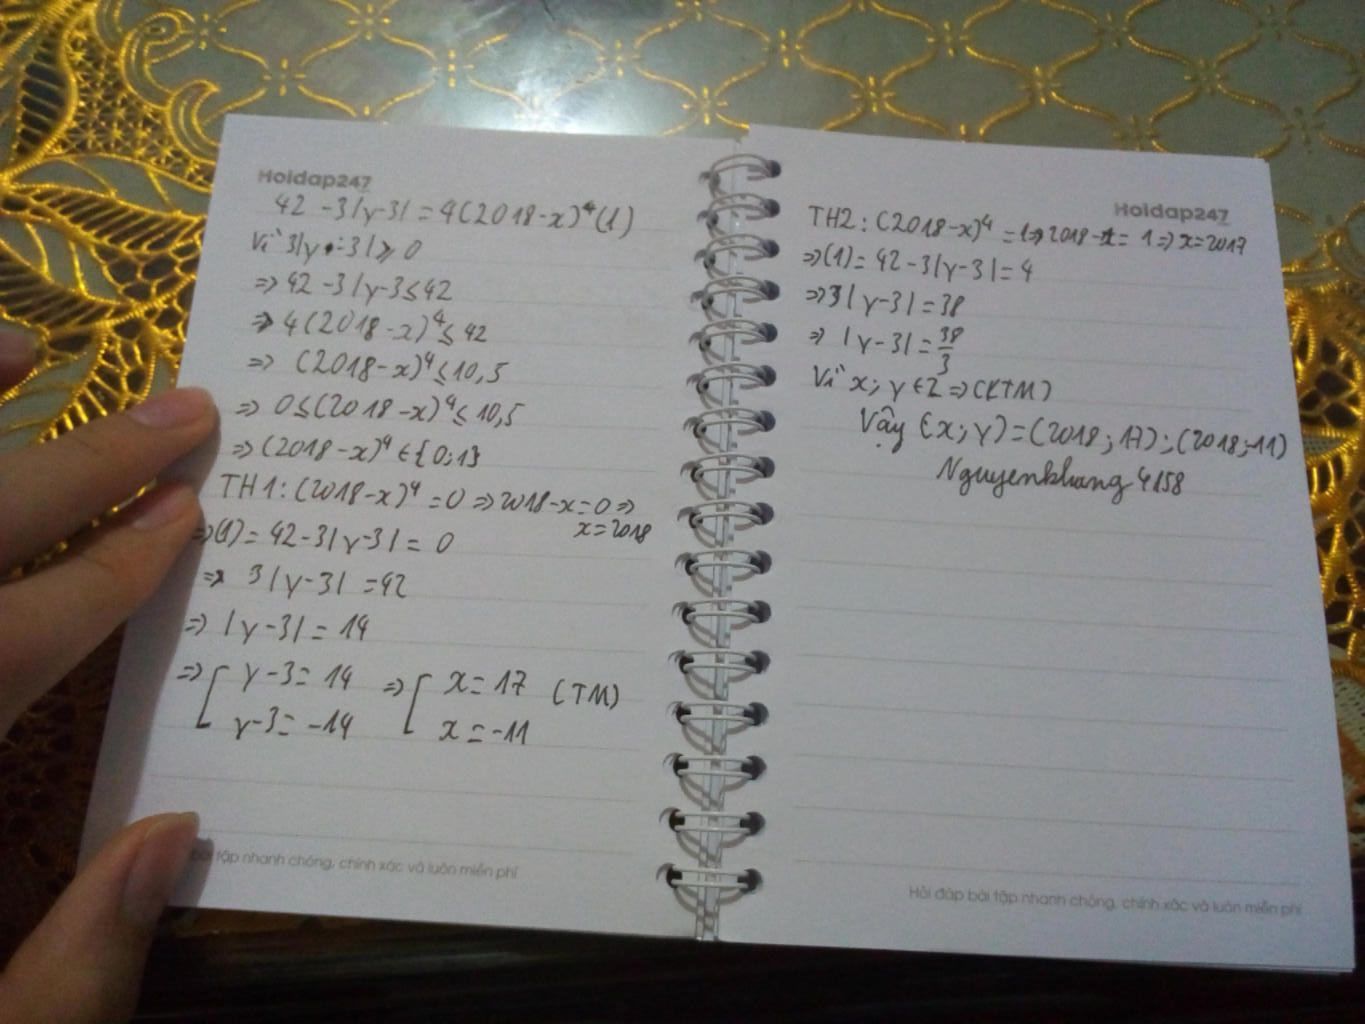 Hoidap247
42 - 3|y-3| = 4(2018-x)⁴ (1)
Vì 3|y-3| ≥ 0
=> 42 - 3|y-3 ≤ 42
=> 4(2018-x)⁴ ≤ 42
=> (2018-x)⁴ ≤ 10,5
=> 0 ≤ (2018-x)⁴ ≤ 10,5
=> (2018-x)⁴ ∈ {0;1}
TH1: (2018-x)⁴ = 0 => 2018-x=0 =>
x=2018
=> (1) = 42-3|y-3| = 0
=> 3|y-3| = 42
=> |y-3| = 14
=> [ y-3 = 14 => [ x = 17 (TM)
y-3 = -14 x = -11
bài tập nhanh chóng, chính xác và luôn miễn phí
Hoidap247
TH2: (2018-x)⁴ = 1 => 2018-x = 1 => x=2017
=> (1) = 42-3|y-3| = 4
=> 3|y-3| = 38
=> |y-3| = 38/3
Vì x; y ∈ Z => (KTM)
Vậy (x; y) = (2018; 17); (2018; -11)
Nguyenkhang 4158
Hỏi đáp bài tập nhanh chóng, chính xác và luôn miễn phí